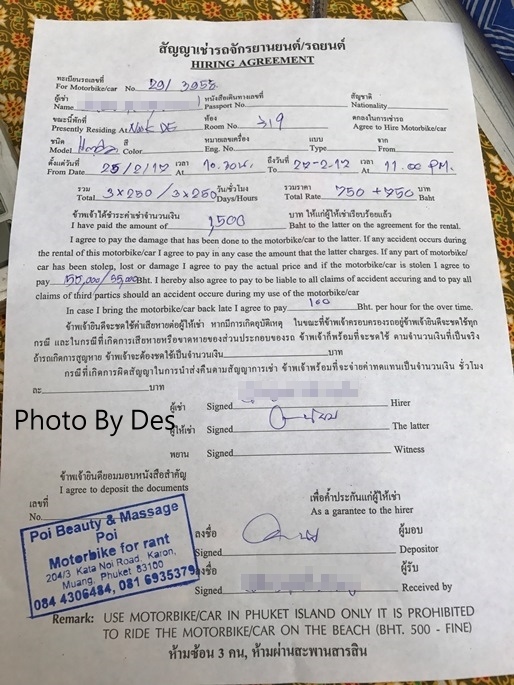 สัญญาเช่ารถจักรยานยนต์/รถยนต์
HIRING AGREEMENT
ทะเบียนรถเลขที่
For Motorbike/car No. 29/ 3955
ผู้เช่า หนังสือเดินทางเลขที่ สัญชาติ
Name Passport No. Nationality
ขณะนี้พักที่ ห้อง ตกลงในการเช่ารถ
Presently Residing At Room No 319 Agree to Hire Motorbike/car
ชนิด สี หมายเลขเครื่อง แบบ จาก
Model Honda Color Eng. No. Type From
ตั้งแต่วันที่ 25/2/17 เวลา 10.30น. ถึงวันที่ 27-2-17 เวลา 11.00 PM.
From Date At To At
รวม 3x250 / 3x250 วัน/ชั่วโมง รวมราคา 750 + 750 บาท
Total Days/Hours Total Rate Baht
ข้าพเจ้าได้ชำระค่าเช่าจำนวนเงิน 1,500 บาท ให้แก่ผู้ให้เช่าเรียบร้อยแล้ว
I have paid the amount of Baht to the latter on the agreement for the rental.
I agree to pay the damage that has been done to the motorbike/car to the latter. If any accident occurs during
the rental of this motorbike/car I agree to pay in any case the amount that the latter charges. If any part of motorbike/
car has been stolen, lost or damage I agree to pay the actual price and if the motorbike is stolen I agree to
pay 55,000/55,000 Bht. I hereby also agree to pay to be liable to all claims of accident accuring and to pay all
claims of third partics should an accident occure during my use of the motorbike/car
In case I bring the motorbike/car back late I agree to pay 100 Bht. per hour for the over time.
ข้าพเจ้ายินดีจะชดใช้ค่าเสียหายต่อผู้ให้เช่า หากมีการเกิดอุบัติเหตุ ในขณะที่ข้าพเจ้าครอบครองรถอยู่ข้าพเจ้ายินดีจะชดใช้ทุก
กรณี และในกรณีที่เกิดการเสียหายหรือขาดหายของส่วนประกอบของรถ ข้าพเจ้าก็พร้อมที่จะชดใช้ ตามจำนวนเงินที่เป็นจริง
ถ้ารถเกิดการสูญหาย ข้าพเจ้าจะต้องชดใช้เป็นจำนวนเงิน บาท
กรณีที่เกิดการผิดสัญญาในการนำส่งคืนตามสัญญาการเช่า ข้าพเจ้าพร้อมที่จะจ่ายค่าทดแทนเป็นจำนวนเงิน ชั่วโมง
ละ บาท
Photo By Des
ผู้เช่า Signed Hirer
ผู้ให้เช่า Signed The latter
พยาน Signed Witness
ข้าพเจ้ายินดียอมมอบหนังสือสำคัญ
I agree to deposit the documents
เพื่อค้ำประกันแก่ผู้ให้เช่า
As a garantee to the hirer
เลขที่
No.
Poi Beauty & Massage
Poi
Motorbike for rant
204/3 Kata Noi Road, Karon,
Muang, Phuket 83100
084 4306484, 081 6935379
ลงชื่อ ผู้มอบ
Signed Depositor
ลงชื่อ ผู้รับ
Signed Received by
Remark: USE MOTORBIKE/CAR IN PHUKET ISLAND ONLY IT IS PROHIBITED
TO RIDE THE MOTORBIKE/CAR ON THE BEACH (BHT. 500 - FINE)
ห้ามซ้อน 3 คน, ห้ามผ่านสะพานสารสิน